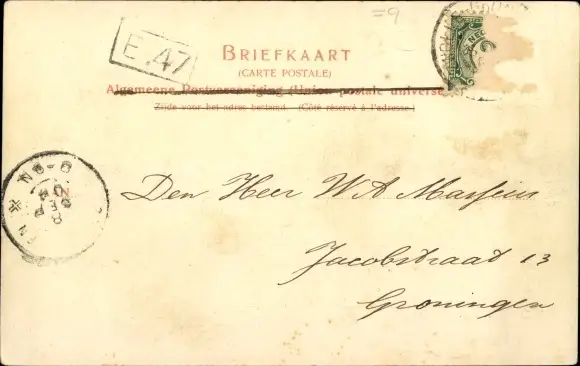 =9
E.47
BRIEFKAART
(CARTE POSTALE)
Algemeene Postvereeniging (Union postale universe
Zijde voor het adres bestemd. (Côté réservé à l'adresse.)
Den Heer W A Massier
Jacobstraat 13
Groningen